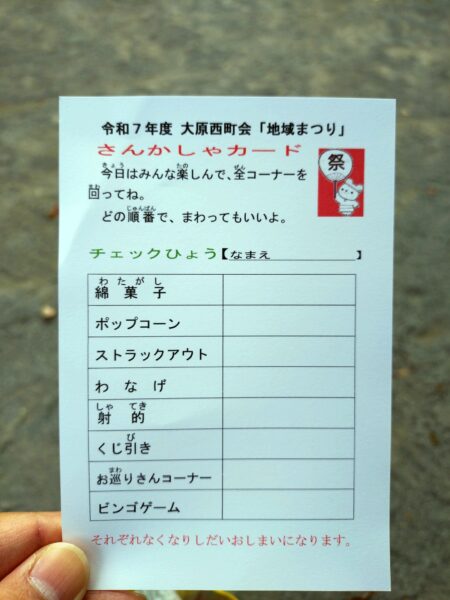 令和７年度 大原西町会「地域まつり」
さんかしゃカード
祭
今日はみんな楽しんで、全コーナーを
回ってね。
どの順番で、まわってもいいよ。
チェックひょう【なまえ　　　　　　】
綿菓子
ポップコーン
ストラックアウト
わなげ
射的
くじ引き
お巡りさんコーナー
ビンゴゲーム
それぞれなくなりしだいおしまいになります。